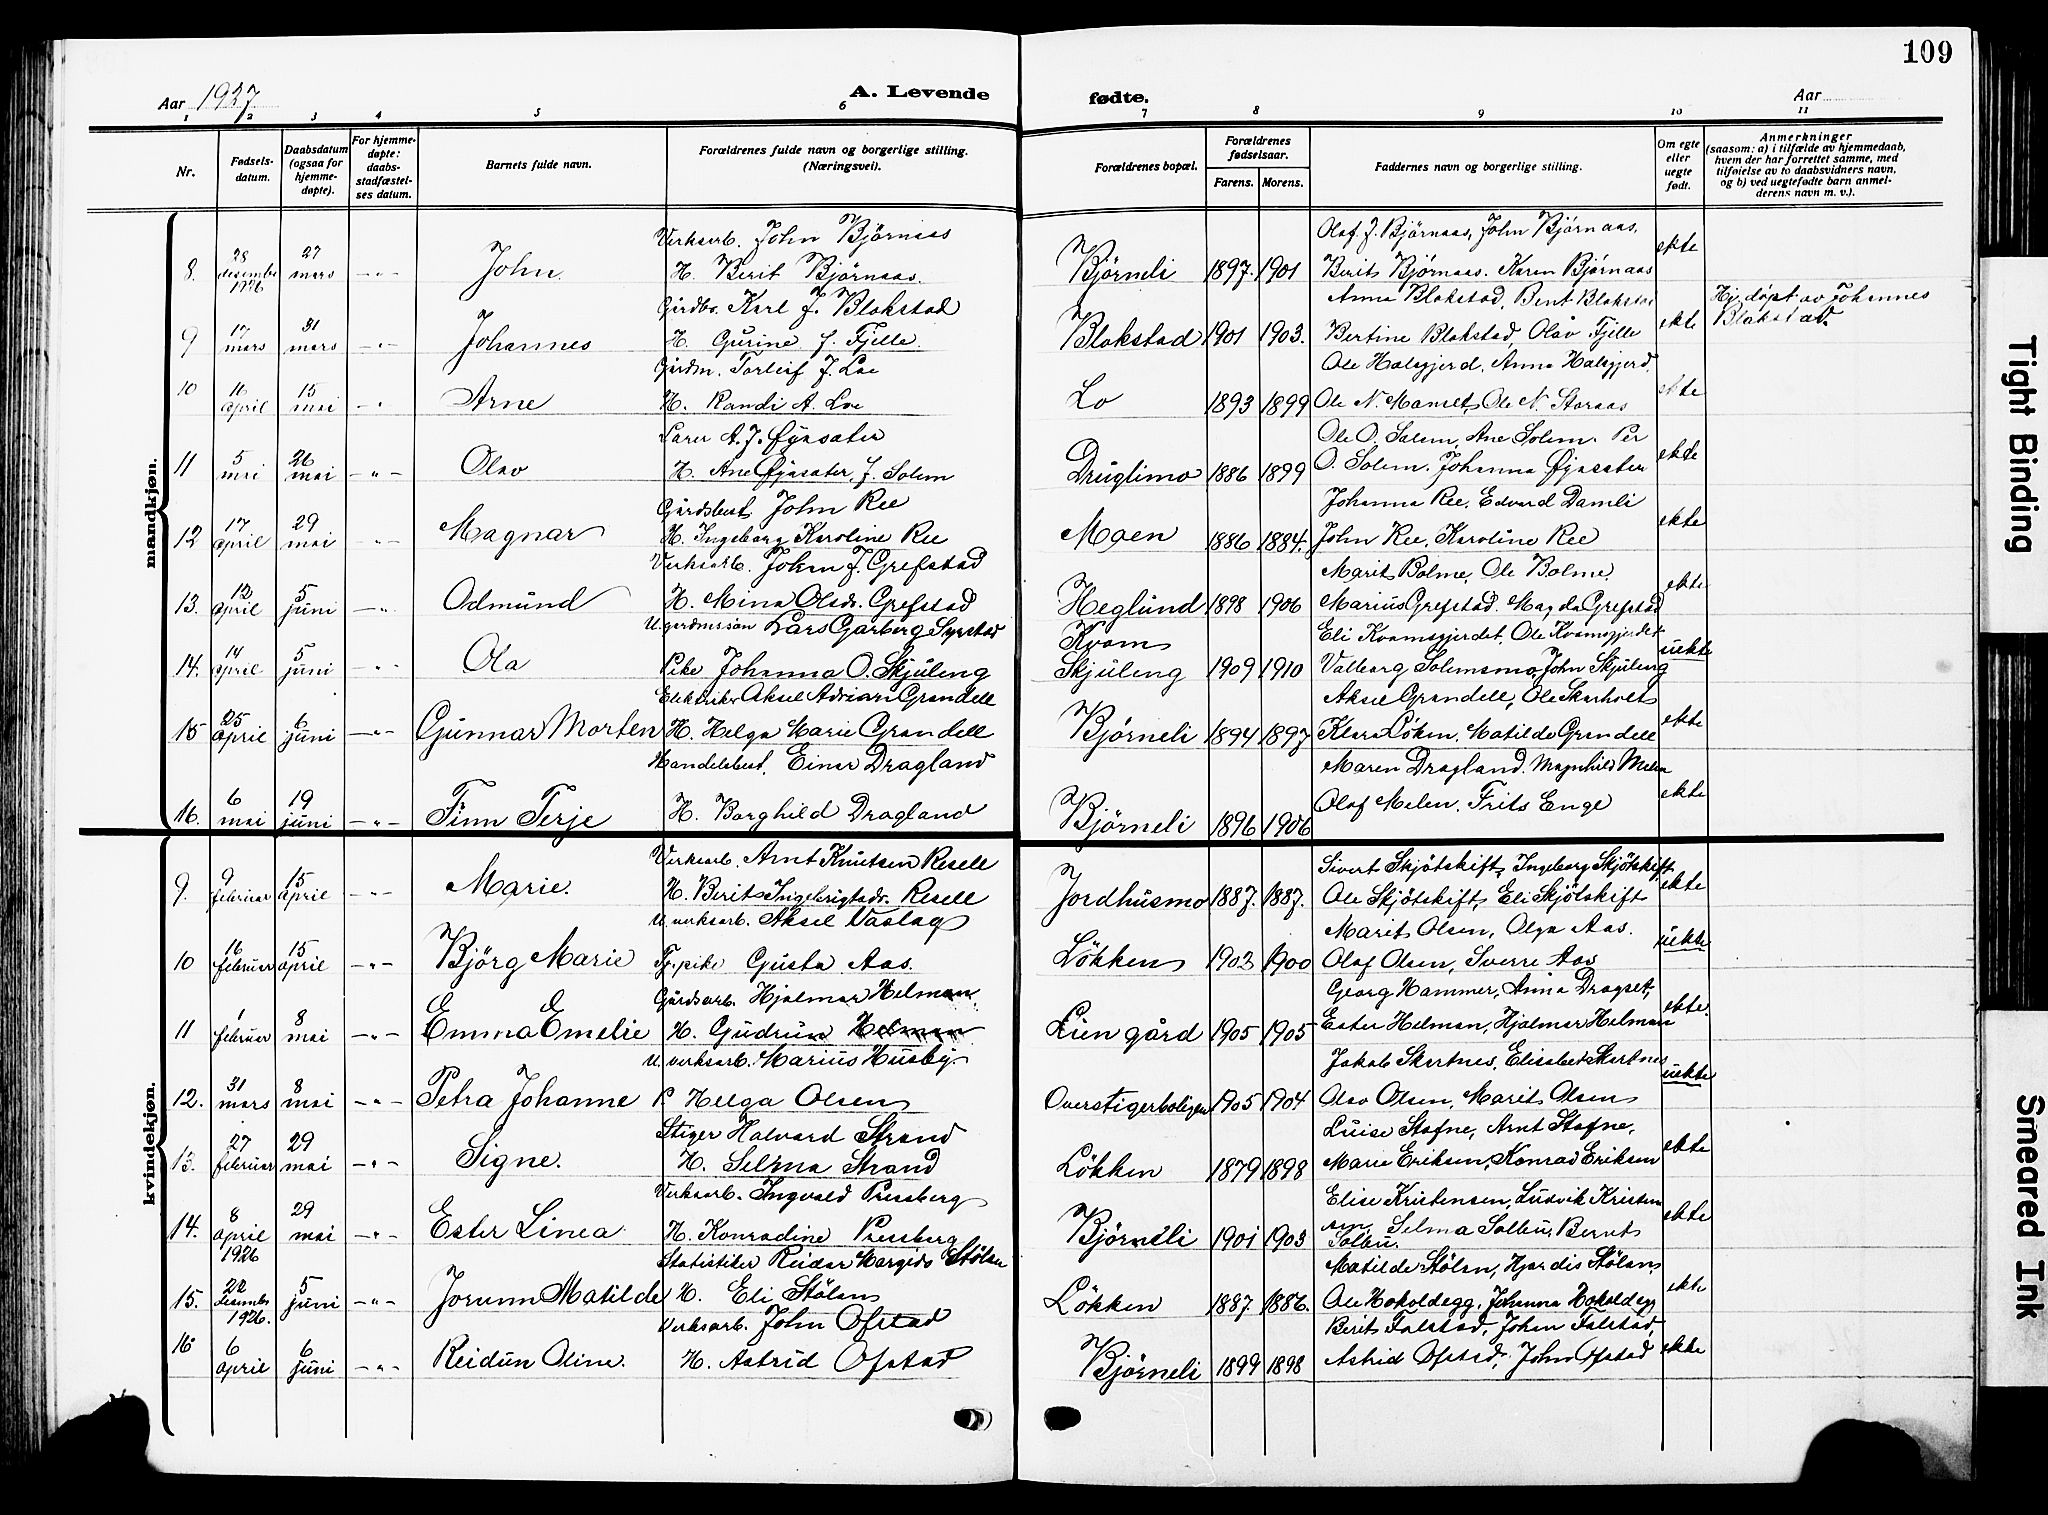 109
Aar 1927
A. Levende
fødte.
Aar
1 2 3 4 5 6 7 8 9 10 11
Nr.
Fødsels-datum.
Daabsdatum (ogsaa for hjemme-døpte).
For hjemme-døpte: daabs-stadfæstel-ses datum.
Barnets fulde navn.
Forældrenes fulde navn og borgerlige stilling. (Næringsvei).
Forældrenes bopæl.
Forældrenes fødselsaar.
Farens. Morens.
Faddernes navn og borgerlige stilling.
Om egte eller uegte født.
Anmerkninger (saasom: a) i tilfælde av hjemmedaab, hvem der har forrettet samme, med tilføielse av to daabsvidners navn, og b) ved uegtefødte barn anmel-derens navn m. v.).
mandkjøn.
Verksarb. John Bjørnaas Olaf J. Bjørnaas, John Bjørnaas,
8. 28 desembe 1926 27 mars -"- John. H. Berit Bjørnaas. Bjørneli 1897. 1901 Berit Bjørnaas. Karen Bjørnaas ekte
Gårdbr. Karl J. Blokstad Anna Blokstad, Berit Blokstad Hj. døpt av Johannes
9 17 mars 31 mars -"- Johannes H. Gurine f. Fjelle Blokstad 1901 1903. Bertine Blokstad, Olav Fjelle ekte Blokstad.
Gårdm. Torleif J. Loe Ole Halsgjerd, Anna Halsgjerd.
10 16 april 15 mai -"- Arne H. Randi A. Loe Lo 1893 1899 Ole N. Mamset, Ole N. Storaas ekte
Lærer A. J. Øyasæter Ole O. Solem, Ane Solem. Per
11 5 mai 26 mai -"- Olav H. Ane Øyasæter, f. Solem Druglimo 1886 1899 O. Solem. Johanna Øyasæter ekte
Gårdsbest. John Ree Johanna Ree. Edvard Damli
12 17 april 29 mai -"- Magnar H. Ingeborg Karoline Ree Moen 1886 1884. John Ree, Karoline Ree ekte
Verksarb. John J. Grefstad Marit Bolme, Ole Bolme.
13. 12 april 5 juni -"- Odmund H. Mina Olsdr. Grefstad Heglund 1898 1906 Marius Grefstad. Magda Grefstad ekte
U. gardmssøn Lars Garberg Syrstad Kvam Eli Kvamsgjerdet. Ole Kvamsgjerdet
14. 14 april 5 juni -"- Ola Pike Johanna O. Skjuleng Skjuleng 1909 1910 Valborg Solemsmo, John Skjuleng uekte
Elektriker Aksel Adrian Grandell Aksel Grandell, Ole Skarholt
15 25 april 6 juni -"- Gunnar Morten H. Helga Marie Grandell Bjørneli 1894 1897 Klara Løken. Matilde Grandell ekte
Handelsbest. Einar Dragland Maren Dragland. Magnhild Melen
16. 6 mai 19 juni -"- Finn Terje H. Borghild Dragland Bjørneli 1896 1906 Olaf Melen. Frits Enge ekte
kvindekjøn.
Verksarb. Arnt Knutsen Resell Sivert Skjøtskift, Ingeborg Skjøtskift
9. 9 februar 15 april -"- Marie. H. Berit Ingebrigtsdr. Resell Jordhusmo 1887. 1887. Ole Skjøtskift, Eli Skjøtskift ekte
U. verksarb. Aksel Vaslag Marit Olsen, Olga Aas.
10 16 februar 15 april -"- Björg Marie Fp. pike Gusta Aas. Løkken 1902 1900 Olaf Olsen, Sverre Aas uekte
Gårdsarb. Hjalmar Helman Georg Hammer, Anna Dragset,
11 1 februar 8 mai -"- Emma Emelie H. Gudrun Helman Lien gård 1905 1905 Ester Helman, Hjalmar Helman ekte.
U. verksarb. Marius Husby Jakob Skartnes, Elisabet Skartnes
12. 31 mars 8 mai -"- Petra Johanne P. Helga Olsen Overstigerboligen 1905 1904 Olav Olsen, Marit Olsen uekte
Stiger Halvard Strand Luise Stafne, Arnt Stafne,
13. 27 februar 29 mai -"- Signe. H. Selma Strand Løkken 1879 1898 Marie Eriksen, Konrad Eriksen ekte
Verksarb. Ingvald Pressberg Elise Kristensen, Ludvik Kristen
14. 8 april 1926 29 mai -"- Ester Linea H. Konradine Pressberg Bjørneli 1901 1903 sen, Selma Solbu, Bernt Solbu. ekte
Statistiker Reidar Margido Stölan Matilde Stölan, Hjørdis Stölan,
15. 22 desembe 1926. 5 juni -"- Jorunn Matilde H. Eli Stölan Løkken 1887. 1886. Ole Hokoldegg, Johanna Hokoldegg ekte
Verksarb. John Ofstad Berit Falstad, John Falstad,
16 6 april 6 juni -"- Reidun Oline. H. Astrid Ofstad Bjørneli 1899 1898 Astrid Ofstad, John Ofstad ekte
Tight Binding
Smeared Ink